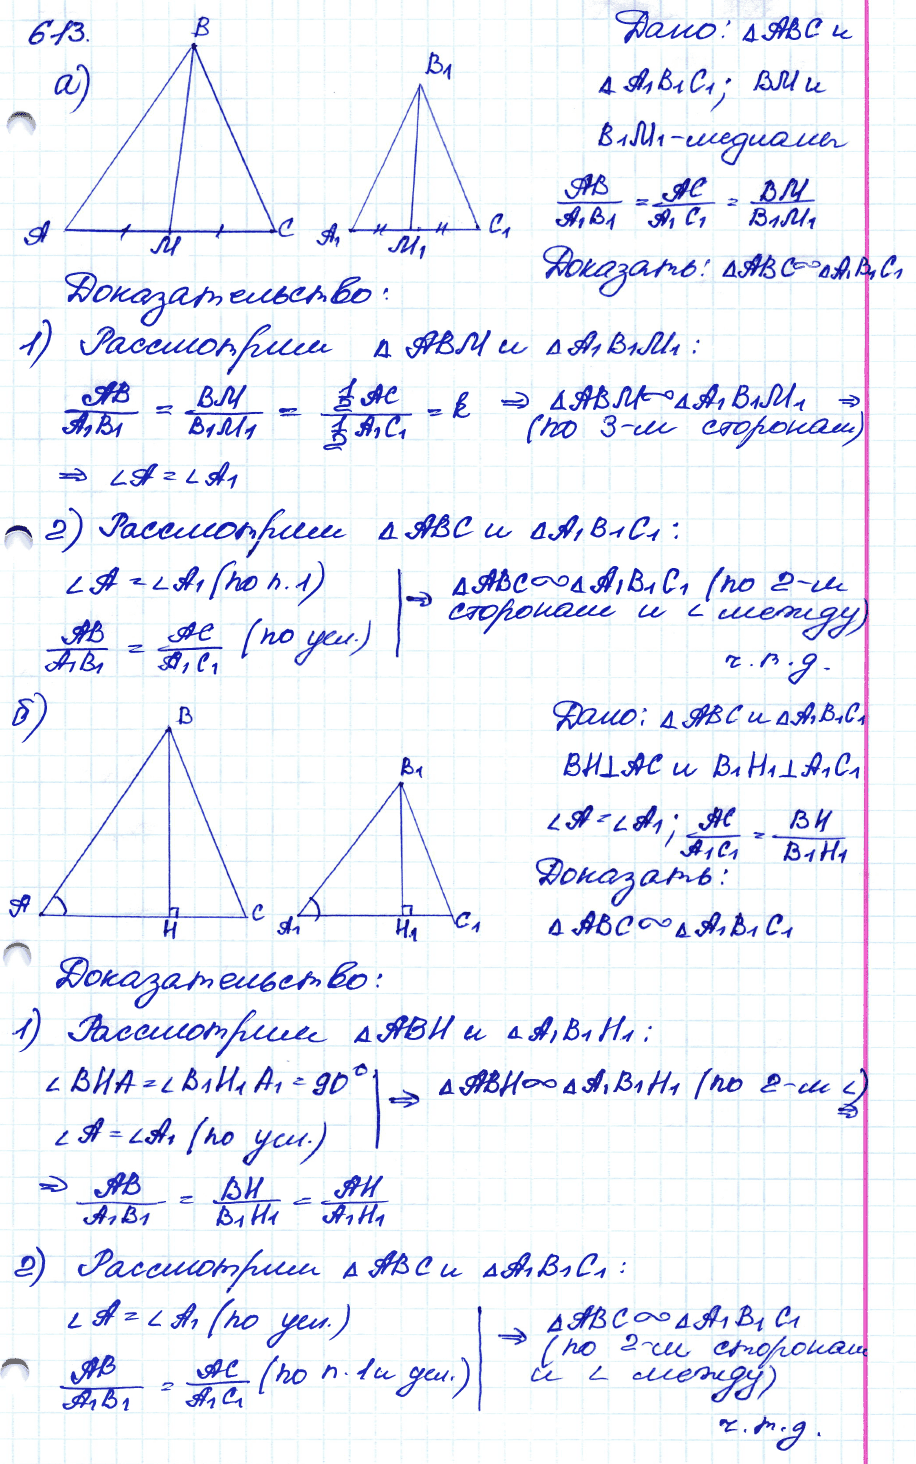 613.
а)
B
A
M
C
B₁
A₁
M₁
C₁
Дано: △ABC и
△A₁B₁C₁; BM и
B₁M₁ - медианы
AB/A₁B₁ = AC/A₁C₁ = BM/B₁M₁
Доказать: △ABC∾△A₁B₁C₁
Доказательство:
1) Рассмотрим △ABM и △A₁B₁M₁:
AB/A₁B₁ = BM/B₁M₁ = ½AC/½A₁C₁ = k ⇒ △ABM∾△A₁B₁M₁ ⇒
(по 3-м сторонам)
⇒ ∠A = ∠A₁
2) Рассмотрим △ABC и △A₁B₁C₁:
∠A = ∠A₁ (по п.1)
AB/A₁B₁ = AC/A₁C₁ (по усл.)
⇒ △ABC∾△A₁B₁C₁ (по 2-м
сторонам и ∠ между)
ч.т.д.
б)
B
A
H
C
B₁
A₁
H₁
C₁
Дано: △ABC и △A₁B₁C₁
BH⊥AC и B₁H₁⊥A₁C₁
∠A = ∠A₁; AC/A₁C₁ = BH/B₁H₁
Доказать:
△ABC∾△A₁B₁C₁
Доказательство:
1) Рассмотрим △ABH и △A₁B₁H₁:
∠BHA = ∠B₁H₁A₁ = 90°
∠A = ∠A₁ (по усл.)
⇒ △ABH∾△A₁B₁H₁ (по 2-м ∠)
⇒
⇒ AB/A₁B₁ = BH/B₁H₁ = AH/A₁H₁
2) Рассмотрим △ABC и △A₁B₁C₁:
∠A = ∠A₁ (по усл.)
AB/A₁B₁ = AC/A₁C₁ (по п.1 и усл.)
⇒ △ABC∾△A₁B₁C₁
(по 2-м сторонам
и ∠ между)
ч.т.д.